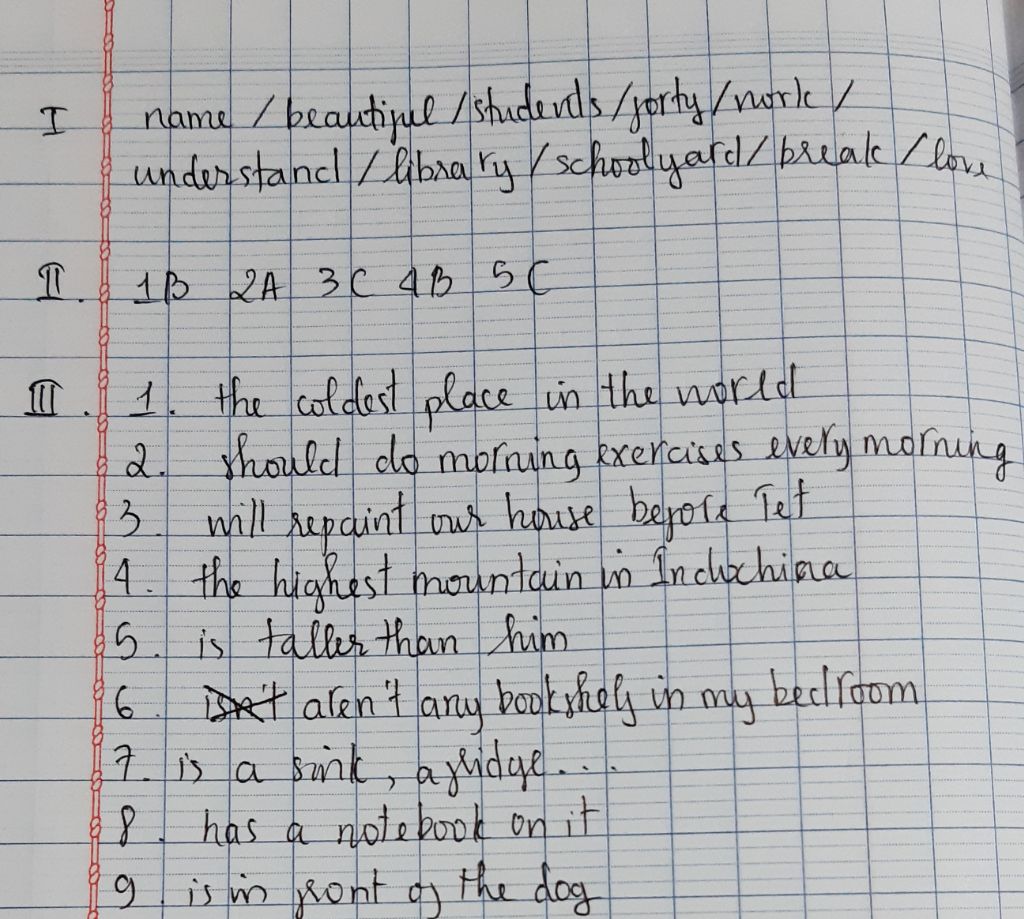 I name / beautiful / students / forty / work /
understand / library / schoolyard / break / love
II. 1B 2A 3C 4B 5C
III. 1. the coldest place in the world
2. should do morning exercises every morning
3 will repaint our house before Tet
4. the highest mountain in Indochina
5. is taller than him
6. isn't aren't any bookshelf in my bedroom
7. is a sink, a fridge....
8. has a notebook on it
9 is in front of the dog